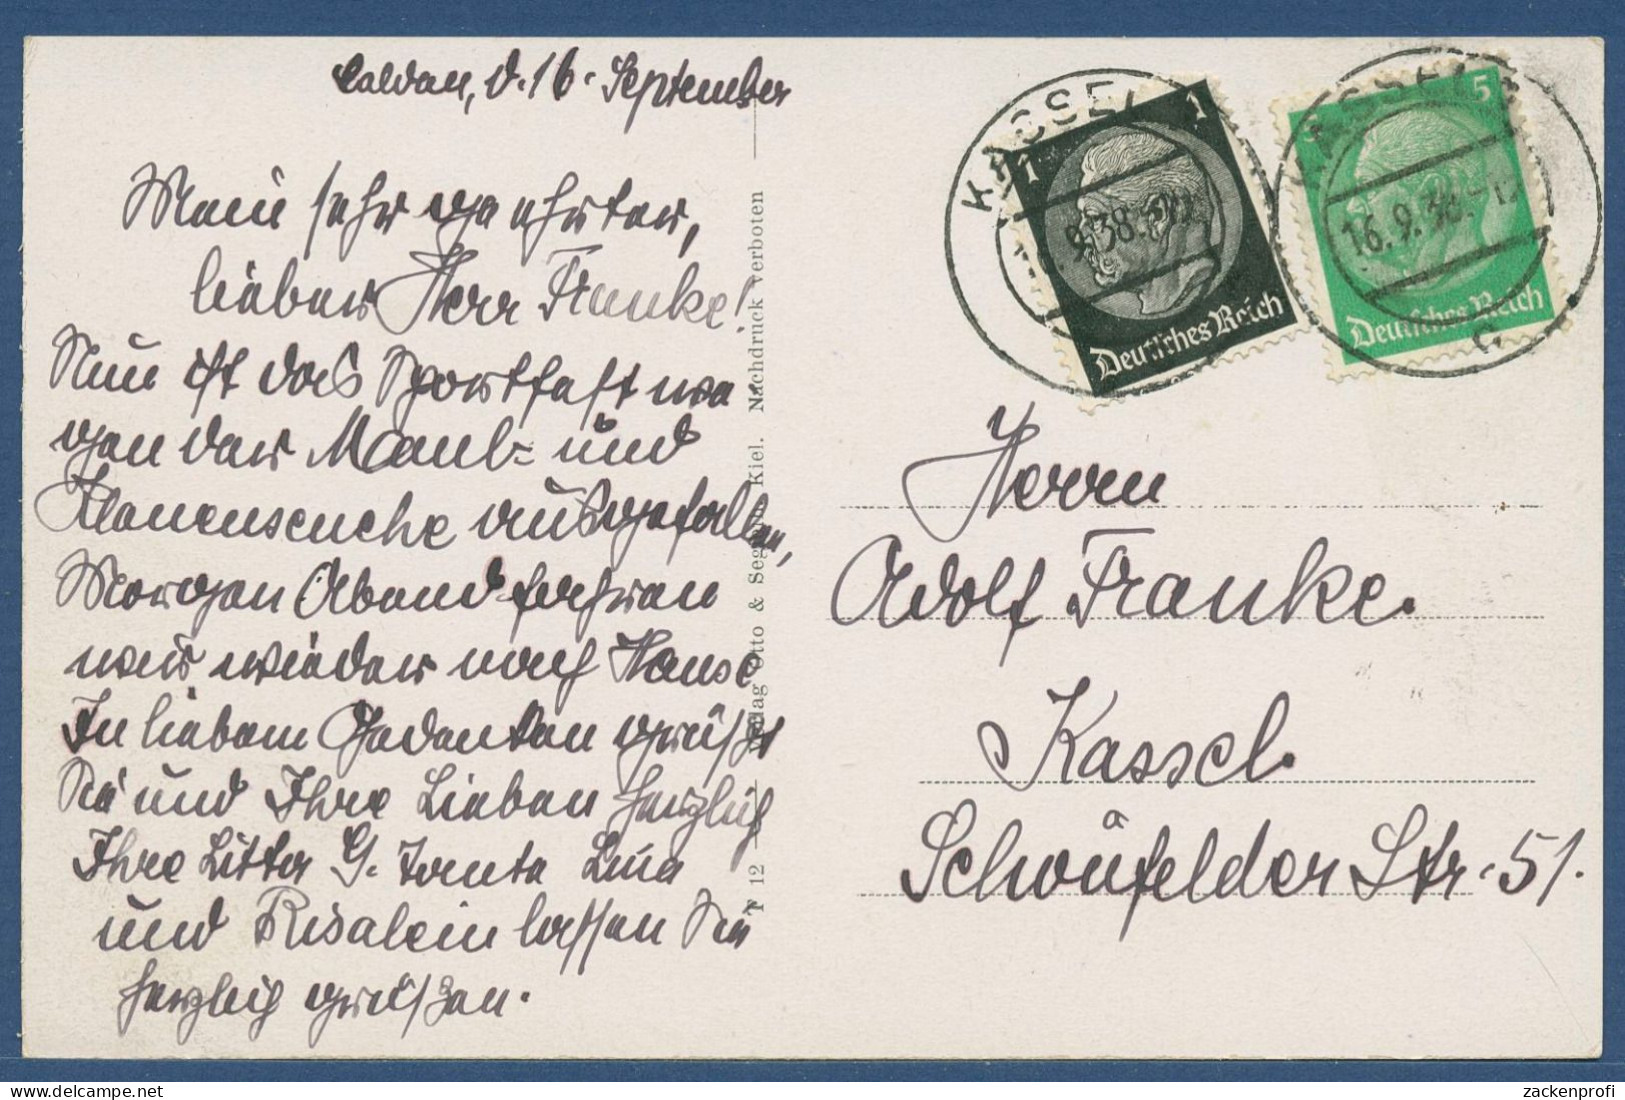 Calden, d. 16. September
Mein sehr geehrter,
lieber Herr Franke!
Nun ist das Sportfest we
gen der Maul- und
Klauenseuche ausgefallen,
Morgen Abend fahren
wir wieder nach Hause
In lieben Gedanken grüßt
Sie und Ihre Lieben herzlich
Ihre G. Tante Lina
und lassen Sie
herzlich grüßen.
Verlag Otto & Kiel. Nachdruck verboten
12
KASSEL
9.38.
1
1
Deutsches Reich
KASSEL
16.9.38.
5
Deutsches Reich
C
Herrn
Adolf Franke.
Kassel.
Schönfelder Str. 51.
zackenprofi